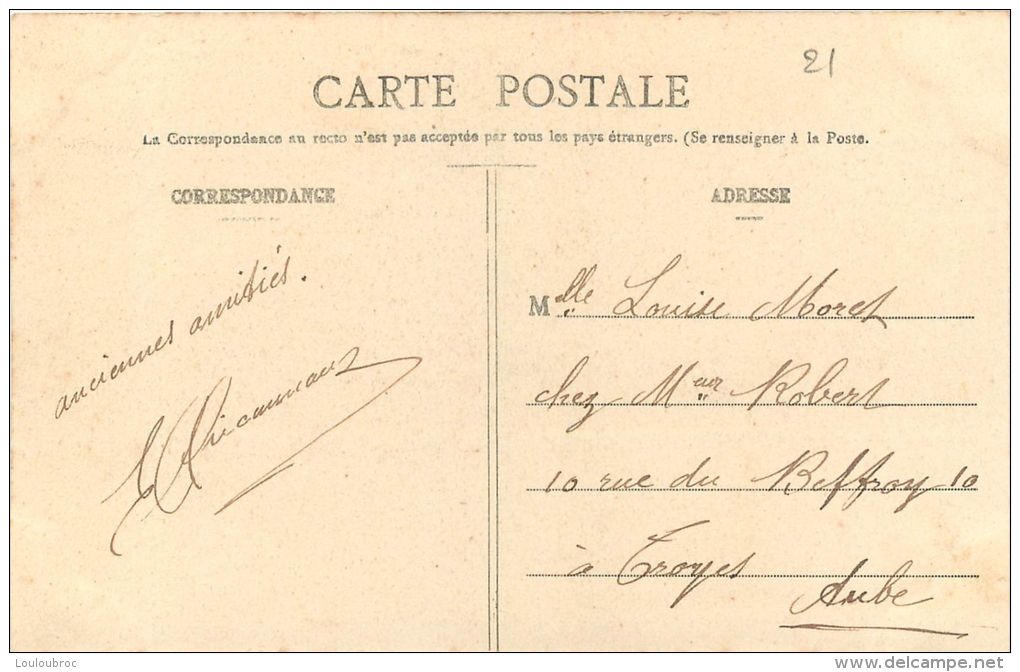 21
CARTE POSTALE
La Correspondance au recto n'est pas acceptée par tous les pays étrangers. (Se renseigner à la Poste.
CORRESPONDANCE
ADRESSE
anciennes amitiés.
Mlle Louise Moret
chez Meur Robert
10 rue du Beffroy 10
à Troyes
Aube
Louloubroc
www.delcampe.net